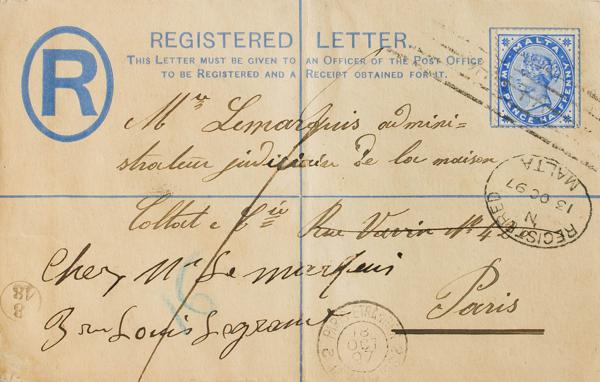 REGISTERED LETTER.
THIS LETTER MUST BE GIVEN TO AN OFFICER OF THE POST OFFICE
TO BE REGISTERED AND A RECEIPT OBTAINED FOR IT.
R
MALTA
TWO PENCE HALFPENNY
Mr Lemarquis admini-
strateur judiciaire de la maison
Collat & Cie Rue Vavin No 4
REGISTERED
N
13 OC 97
MALTA
Chez Mr Lemarquis
3 rue Louis Legrand
Paris
8
18
18
OCT
97